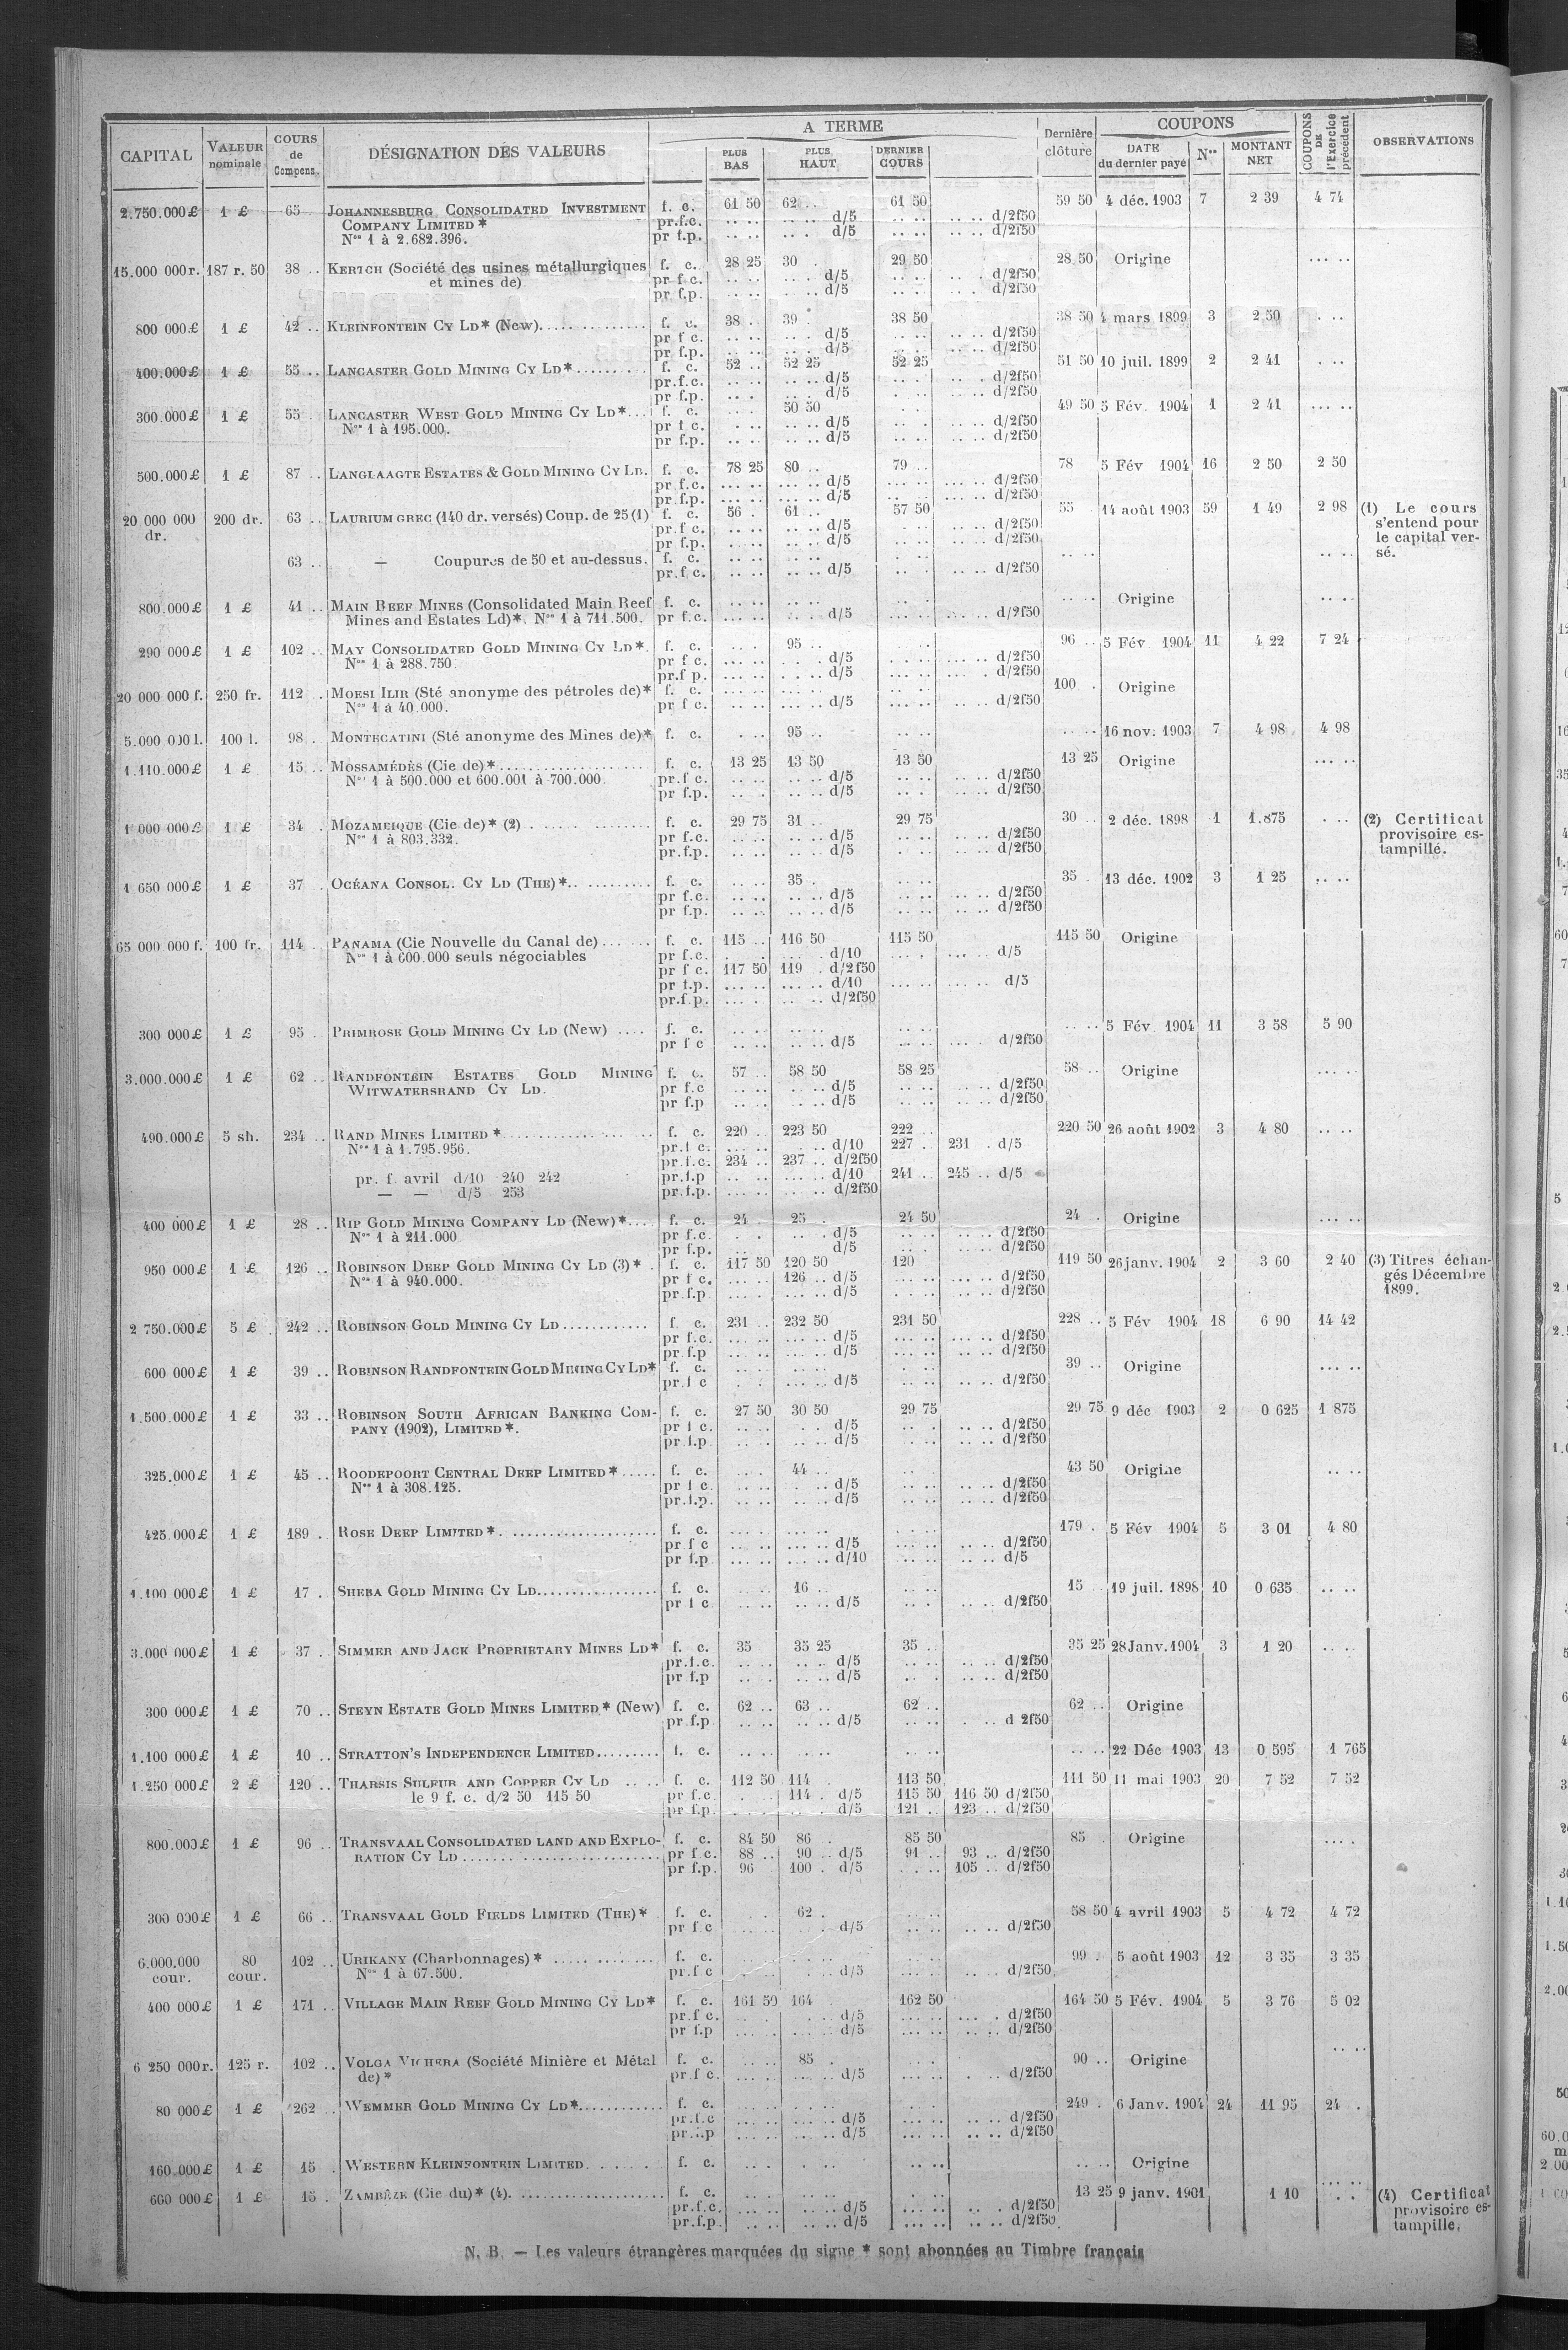 CAPITAL VALEUR nominale COURS de Compens. DÉSIGNATION DES VALEURS A TERME PLUS BAS PLUS HAUT DERNIER COURS Dernière clôture COUPONS DATE du dernier payé Nos MONTANT NET COUPONS DE l'Exercice précédent OBSERVATIONS
2.750.000£ 1 £ 65 JOHANNESBURG CONSOLIDATED INVESTMENT f. c. 61 50 62 .. 61 50 59 50 4 déc. 1903 7 2 39 4 74
COMPANY LIMITED * pr.f.c. .. .. .. .. d/5 .. .. .. .. d/2f50
Nos 1 à 2.682.396. pr f.p. .. .. .. . d/5 .. .. .. .. d/2f50
15.000 000r. 187 r. 50 38 .. KERTCH (Société des usines métallurgiques f. c. 28 25 30 . 29 50 28 50 Origine ... ..
et mines de) pr f c. .. .. .. .. d/5 .. .. .. . d/2f50
pr f.p. .. .. .. .. d/5 .. . .. . d/2f50
800 000£ 1 £ 42 .. KLEINFONTEIN CY LD* (New) f. c. 38 .. 39 . 38 50 38 50 4 mars 1899 3 2 50 . ..
pr f c. .. .. .. . d/5 .. .. .. .. d/2f50
pr f.p. .. .. .. . d/5 .. .. .. .. d/2f50
400.000£ 1 £ 55 .. LANCASTER GOLD MINING CY LD* f. c. 52 .. 52 25 52 25 51 50 10 juil. 1899 2 2 41 . ..
pr.f.c. .. .. .. .. d/5 .. . .. . d/2f50
pr f.p. .. . .. .. d/5 . .. .. .. d/2f50
300.000£ 1 £ 55 LANCASTER WEST GOLD MINING CY LD* f. c. 50 50 49 50 5 Fév. 1904 1 2 41 ... ..
Nos 1 à 195.000. pr f c. . .. .. .. d/5 .. . .. .. d/2f50
pr f.p. .. .. .. .. d/5 .. .. .. .. d/2f50
500.000£ 1 £ 87 .. LANGLAAGTE ESTATES & GOLD MINING CY LD. f. c. 78 25 80 .. 79 .. 78 5 Fév 1904 16 2 50 2 50
pr f.c. ... .. ... .. d/5 ... .. ... .. d/2f50
pr f.p. ... .. ... .. d/5 .. ... .. d/2f50
20 000 000 200 dr. 63 .. LAURIUM GREC (140 dr. versés) Coup. de 25 (1) f. c. 56 . 61 .. 57 50 55 14 août 1903 59 1 49 2 98 (1) Le cours
dr. pr.f c. .. .. .. .. d/5 .. .. .. .. d/2f50 s'entend pour
pr f.p. . .. .. .. d/5 . .. .. .. d/2f50 le capital ver-
63 .. — Coupures de 50 et au-dessus. f. c. .. .. .. .. . .. .. .. .. .. sé.
pr.f c. .. .. .. .. d/5 .. . .. .. d/2f50
800.000£ 1 £ 41 .. MAIN REEF MINES (Consolidated Main Reef f. c. .. .. .. .. .. . .. .. Origine .. ..
Mines and Estates Ld)*. Nos 1 à 711.500. pr f.c. ... .. .. .. d/5 ... .. ... .. d/2f50
290 000£ 1 £ 102 .. MAY CONSOLIDATED GOLD MINING CY LD*. f. c. .. . 95 .. .. 96 .. 5 Fév 1904 11 4 22 7 24
Nos 1 à 288.750. pr f c. ... .. . . . d/5 . .. ... .. d/2f50
pr.f p. ... .. . .. d/5 ... .. ... . d/2f50
20 000 000 f. 250 fr. 112 . MOESI ILIR (Sté anonyme des pétroles de)* f. c. .. .. ... .. .. . 100 . Origine
Nos 1 à 40.000. pr f c. .. .. ... .. d/5 ... .. .. .. d/2f50
5.000 000l. 100 l. 98 . MONTECATINI (Sté anonyme des Mines de)* f. c. . .. 95 .. .. .. 16 nov. 1903 7 4 98 4 98
1.110.000£ 1 £ 15 .. MOSSAMÉDÈS (Cie de)* f. c. 13 25 13 50 13 50 13 25 Origine ... ..
Nos 1 à 500.000 et 600.001 à 700.000. pr.f c. .. .. .. .. d/5 .. .. .. .. d/2f50
pr f.p. .. . .. .. d/5 .. . .. .. d/2f50
1 000 000£ 1 £ 34 . MOZAMBIQUE (Cie de)* (2) f. c. 29 75 31 .. 29 75 30 .. 2 déc. 1898 1 1.875 . .. (2) Certificat
Nos 1 à 803.332. pr f.c. .. .. .. .. d/5 .. .. .. .. d/2f50 provisoire es-
pr.f.p. .. .. .. .. d/5 . .. .. .. d/2f50 tampillé.
1 650 000£ 1 £ 37 . OCÉANA CONSOL. CY LD (THE)* f. c. .. .. 35 . .. .. 35 . 13 déc. 1902 3 1 25 .. ..
pr f.c. .. .. .. .. d/5 .. .. .. .. d/2f50
pr f.p. .. .. .. .. d/5 .. .. .. .. d/2f50
65 000 000 f. 100 fr. 114 . PANAMA (Cie Nouvelle du Canal de) f. c. 115 .. 116 50 115 50 115 50 Origine
Nos 1 à 600.000 seuls négociables pr f.c. d/10 ... . ... .. d/5
pr f c. 117 50 119 . d/2f50
pr f.p. ... .. ... .. d/10 ... .. ... .. d/5
pr.f.p. ... . .. .. d/2f50
300 000£ 1 £ 95 . PRIMROSE GOLD MINING CY LD (New) f. c. .. .. .. .. .. .. .. .. 5 Fév. 1904 11 3 58 5 90
pr f c .. .. .. .. d/5 .. .. ... . d/2f50
3.000.000£ 1 £ 62 .. RANDFONTEIN ESTATES GOLD MINING f. c. 57 .. 58 50 58 25 58 .. Origine ... ..
WITWATERSRAND CY LD. pr f.c .. .. .. .. d/5 .. .. .. .. d/2f50
pr f.p .. .. .. .. d/5 .. .. .. .. d/2f50
490.000£ 5 sh. 234 .. RAND MINES LIMITED * f. c. 220 .. 223 50 222 .. 220 50 26 août 1902 3 4 80 .. ..
Nos 1 à 1.795.956. pr.f c. ... .. .. .. d/10 227 .. 231 . d/5
pr.f.c. 234 .. 237 .. d/2f50
pr. f. avril d/10 240 242 pr.f.p .. .. ... .. d/10 241 .. 245 .. d/5
— — d/5 253 pr.f.p. ... .. .. .. d/2f50
400 000£ 1 £ 28 .. RIP GOLD MINING COMPANY LD (New)* f. c. 24 . 25 . 24 50 24 . Origine ... ..
Nos 1 à 211.000 pr f.c. . . .. .. d/5 .. .. .. .. d/2f50
pr f.p. .. d/5 .. . .. .. d/2f50
950 000£ 1 £ 126 .. ROBINSON DEEP GOLD MINING CY LD (3)* f. c. 117 50 120 50 120 119 50 26 janv. 1904 2 3 60 2 40 (3) Titres échan-
Nos 1 à 940.000. pr f c. ... .. 126 .. d/5 ... .. ... .. d/2f50 gés Décembre
pr f.p .. .. ... .. d/5 .. .. .. .. d/2f50 1899.
2 750.000£ 5 £ 242 .. ROBINSON GOLD MINING CY LD f. c. 231 .. 232 50 231 50 228 .. 5 Fév 1904 18 6 90 14 42
pr f.c. ... .. ... .. d/5 ... .. ... .. d/2f50
pr f.p ... .. ... .. d/5 ... .. .. .. d/2f50
600 000£ 1 £ 39 .. ROBINSON RANDFONTEIN GOLD MINING CY LD* f. c. .. .. .. .. . .. 39 .. Origine ... ..
pr.f c . . ... .. d/5 . .. .. .. d/2f50
1.500.000£ 1 £ 33 .. ROBINSON SOUTH AFRICAN BANKING COM- f. c. 27 50 30 50 29 75 29 75 9 déc 1903 2 0 625 1 875
PANY (1902), LIMITED*. pr f c. .. .. . . d/5 .. . .. .. d/2f50
pr.f.p. .. .. .. . d/5 .. .. .. .. d/2f50
325.000£ 1 £ 45 .. ROODEPOORT CENTRAL DEEP LIMITED* f. c. .. . 44 .. .. . 43 50 Origine .. ..
Nos 1 à 308.125. pr f c. .. .. . .. d/5 .. .. .. .. d/2f50
pr.f.p. .. .. .. .. d/5 .. .. .. .. d/2f50
425.000£ 1 £ 189 . ROSE DEEP LIMITED* f. c. ... . ... .. . .. 179 . 5 Fév 1904 5 3 01 4 80
pr f c ... .. ... .. d/5 .. .. .. .. d/2f50
pr f.p ... .. ... .. d/10 ... .. .. .. d/5
1.100 000£ 1 £ 17 . SHEBA GOLD MINING CY LD f. c. .. .. 16 .. .. .. 15 19 juil. 1898 10 0 635 .. ..
pr f c .. .. .. .. d/5 .. . .. .. d/2f50
3.000 000£ 1 £ 37 .. SIMMER AND JACK PROPRIETARY MINES LD* f. c. 35 35 25 35 .. 35 25 28 Janv. 1904 3 1 20 .. ..
pr.f.c. .. .. .. .. d/5 .. .. .. .. d/2f50
pr f.p .. .. .. .. d/5 .. . .. .. d/2f50
300 000£ 1 £ 70 .. STEYN ESTATE GOLD MINES LIMITED* (New) f. c. 62 .. 63 .. 62 .. 62 .. Origine
pr.f.p .. .. .. .. d/5 .. .. . .. d 2f50
1.100 000£ 1 £ 10 .. STRATTON'S INDEPENDENCE LIMITED f. c. .. .. .. .. .. .. .. .. 22 Déc 1903 13 0 595 1 765
1.250 000£ 2 £ 120 .. THARSIS SULFUR AND COPPER CY LD f. c. 112 50 114 . 113 50 111 50 11 mai 1903 20 7 52 7 52
le 9 f. c. d/2 50 115 50 pr f.c. . .. 114 . d/5 115 50 116 50 d/2f50
pr f.p. .. .. .. .. d/5 121 .. 123 .. d/2f50
800.000£ 1 £ 96 .. TRANSVAAL CONSOLIDATED LAND AND EXPLO- f. c. 84 50 86 . 85 50 85 . Origine ... .
RATION CY LD pr f c. 88 .. 90 .. d/5 91 .. 93 .. d/2f50
pr f.p. 96 100 . d/5 . .. 105 .. d/2f50
300 000£ 1 £ 66 .. TRANSVAAL GOLD FIELDS LIMITED (THE)* f. c. . . 62 . . .. 58 50 4 avril 1903 5 4 72 4 72
pr f c .. .. . . d/5 .. .. .. .. d/2f50
6.000.000 80 102 .. URIKANY (Charbonnages)* f. c. .. .. 99 . 5 août 1903 12 3 35 3 35
cour. cour. Nos 1 à 67.500. pr.f c . . . .. d/5 ... .. .. . d/2f50
400 000£ 1 £ 171 .. VILLAGE MAIN REEF GOLD MINING CY LD* f. c. 161 50 164 162 50 164 50 5 Fév. 1904 5 3 76 5 02
pr.f c. . . . .. d/5 ... .. ... . d/2f50
pr f.p ... . ... .. d/5 ... .. .. .. d/2f50
6 250 000r. 125 r. 102 .. VOLGA VICHERA (Société Minière et Métal f. c. .. .. 85 . . . 90 .. Origine .. ..
de)* pr f c. ... . ... .. d/5 ... .. . .. d/2f50
80 000£ 1 £ 262 .. WEMMER GOLD MINING CY LD* f. c. .. .. .. . . . 249 . 6 Janv. 1904 24 11 95 24 .
pr.f.c ... .. ... .. d/5 ... .. .. .. d/2f50
pr.f.p ... .. ... .. d/5 ... .. .. .. d/2f50
160.000£ 1 £ 15 . WESTERN KLEINFONTEIN LIMITED f. c. .. . .. . .. .. .. .. Origine
600 000£ 1 £ 15 . ZAMBÈZE (Cie du)* (4) f. c. .. .. .. .. . .. 13 25 9 janv. 1901 1 10 . . (4) Certificat
pr.f.c. .. .. .. .. d/5 ... .. .. . d/2f50 provisoire es-
pr.f.p. .. .. .. .. d/5 ... .. .. .. d/2f50 tampillé.
N. B. — Les valeurs étrangères marquées du signe * sont abonnées au Timbre français